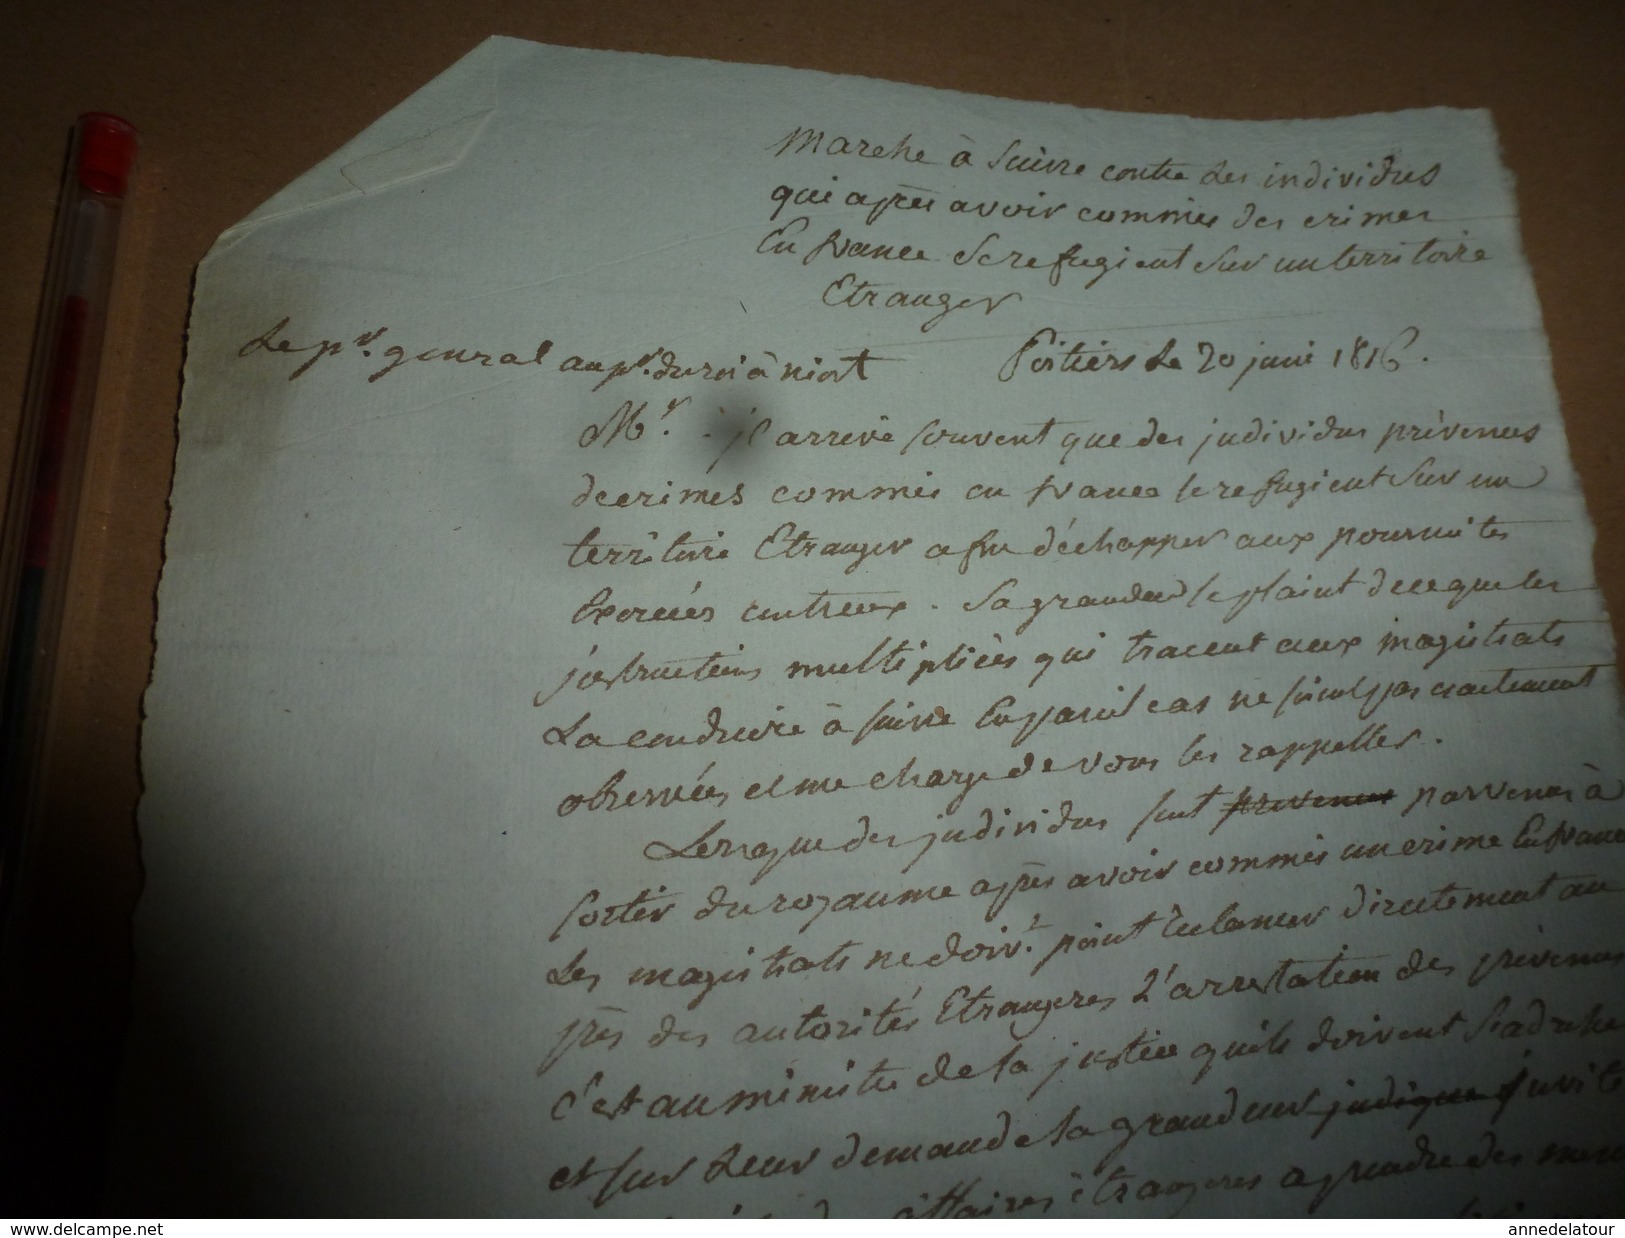 Marche à suivre contre des individus
qui après avoir commis des crimes
En france se refugient sur un territoire
Etranger
Le pr. general au pr. du roi à niort
Poitiers Le 20 juin 1816.
Mr. il arrive souvent que des individus prévenus
de crimes commis en france se refugient sur un
territoire Etranger afin d'échapper aux poursuites
Exercées contr'eux. Sa grandeur se plaint de ce que les
instructions multipliées qui tracent aux magistrats
La conduire à suivre En pareil cas ne sont pas exactement
observées et me charge de vous les rappeller.
Lorsque des individus sont prevenus parvenus à
sortir du royaume après avoir commis un crime En france
Les magistrats ne doivt. point réclamer directement au
près des autorités Etrangeres L'arrestation des prévenus
C'est au ministre de la justice qu'ils doivent s'adresse
et sur Leur demande sa grandeur indique invite
affaires étrangeres a prendre des mesu
www.delcampe.net
annedelatour